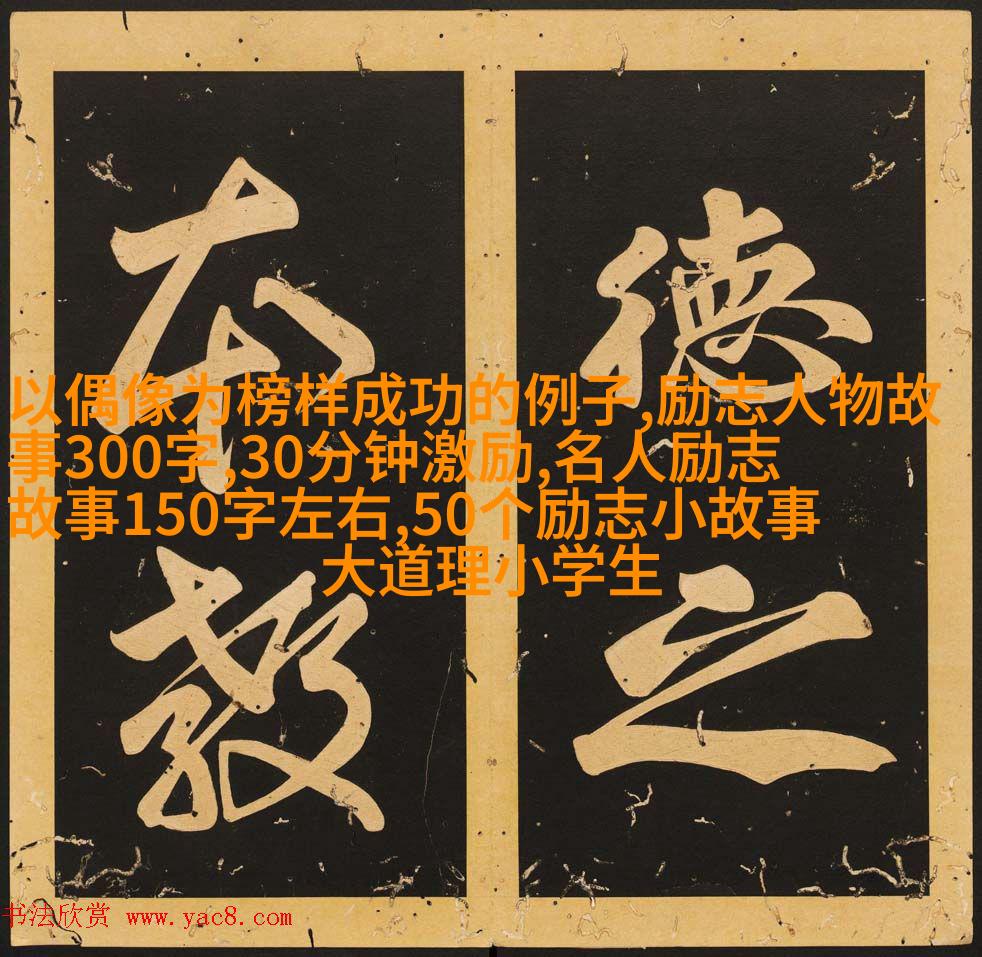 德之
本教
以偶像为榜样成功的例子,励志人物故
事300字,30分钟激励,名人励志
故事150字左右,50个励志小故事
大道理小学生
书法欣赏 www.yac8.com